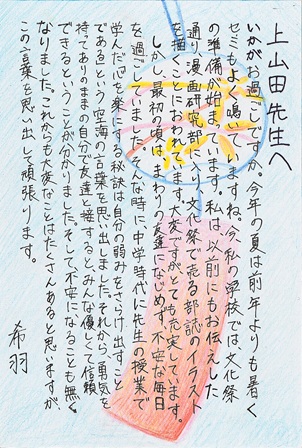 上山田先生へ
いかがお過ごしですか。今年の夏は前年よりも暑く
セミもよく鳴いていますね。今、私の学校では文化祭
の準備が始まっています。私は、以前にもお伝えした
通り漫画研究部に入り、文化祭で売る部誌のイラスト
を描くことにおわれています。大変ですがとても充実しています。
しかし、最初の頃はまわりの友達になじめず、不安な毎日
を過ごしていました。そんな時に中学時代に先生の授業で
学んだ「心を楽にする秘訣は自分の弱みをさらけ出すこと
である」という空海の言葉を思い出しました。それから、勇気を
持ってありのままの自分で友達と接すると、みんな優しくて信頼
できるということが分かりました。そして、不安になることも無く
なりました。これからも大変なことはたくさんあると思いますが、
この言葉を思い出して頑張ります。
希羽